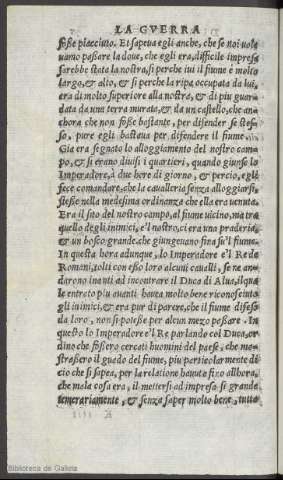 LA GVERRA
fosse piacciuto. Et sapeua egli anche, che se noi uole
uamo passare la doue, che egli era, difficile impresa
sarebbe stata la nostra, si perche iui il fiume è molto
largo, & alto, & si perche la ripa occupata da lui,
era di molto superiore alla nostra, & di piu guar
data da una terra murata, & da un castello, che an
chora che non fosse bastante, per difender se stes
so, pure egli bastaua per difendere il fiume.
Gia era segnato lo alloggiamento del nostro cam
po, & si erano diuisi i quartieri, quando giunse lo
Imperadore, à due hore di giorno, & percio, egli
fece comandare, che la caualleria senza alloggiarsi
stesse nella medesima ordinanza che ella era uenuta.
Era il sito del nostro campo, al fiume uicino, ma tra
quello degli inimici, e'l nostro, ci era una praderia,
& un bosco grande che giungeuano fina su'l fiume.
In questa hora adunque, lo Imperadore e'l Re de
Romani, tolti con esso loro alcuni caualli, se ne an
darono inanti ad incontrare il Duca di Alua, il qua
le entrato piu auanti haueua molto bene riconosciuto
gli inimici, & era pur di parere, che il fiume difeso
da loro, non si potesse per alcun mezo passare. In
questo lo Imperadore e'l Re parlando col Duca, or
dino che fossero cercati huomini del paese, che mo-
strassero il guado del fiume, piu particolarmente di
cio che si sapea, per la relatione hauuta fino allhora,
che mala cosa era, il mettersi ad impresa si grande
temerariamente, & senza saper molto bene, tutto
Biblioteca de Galicia